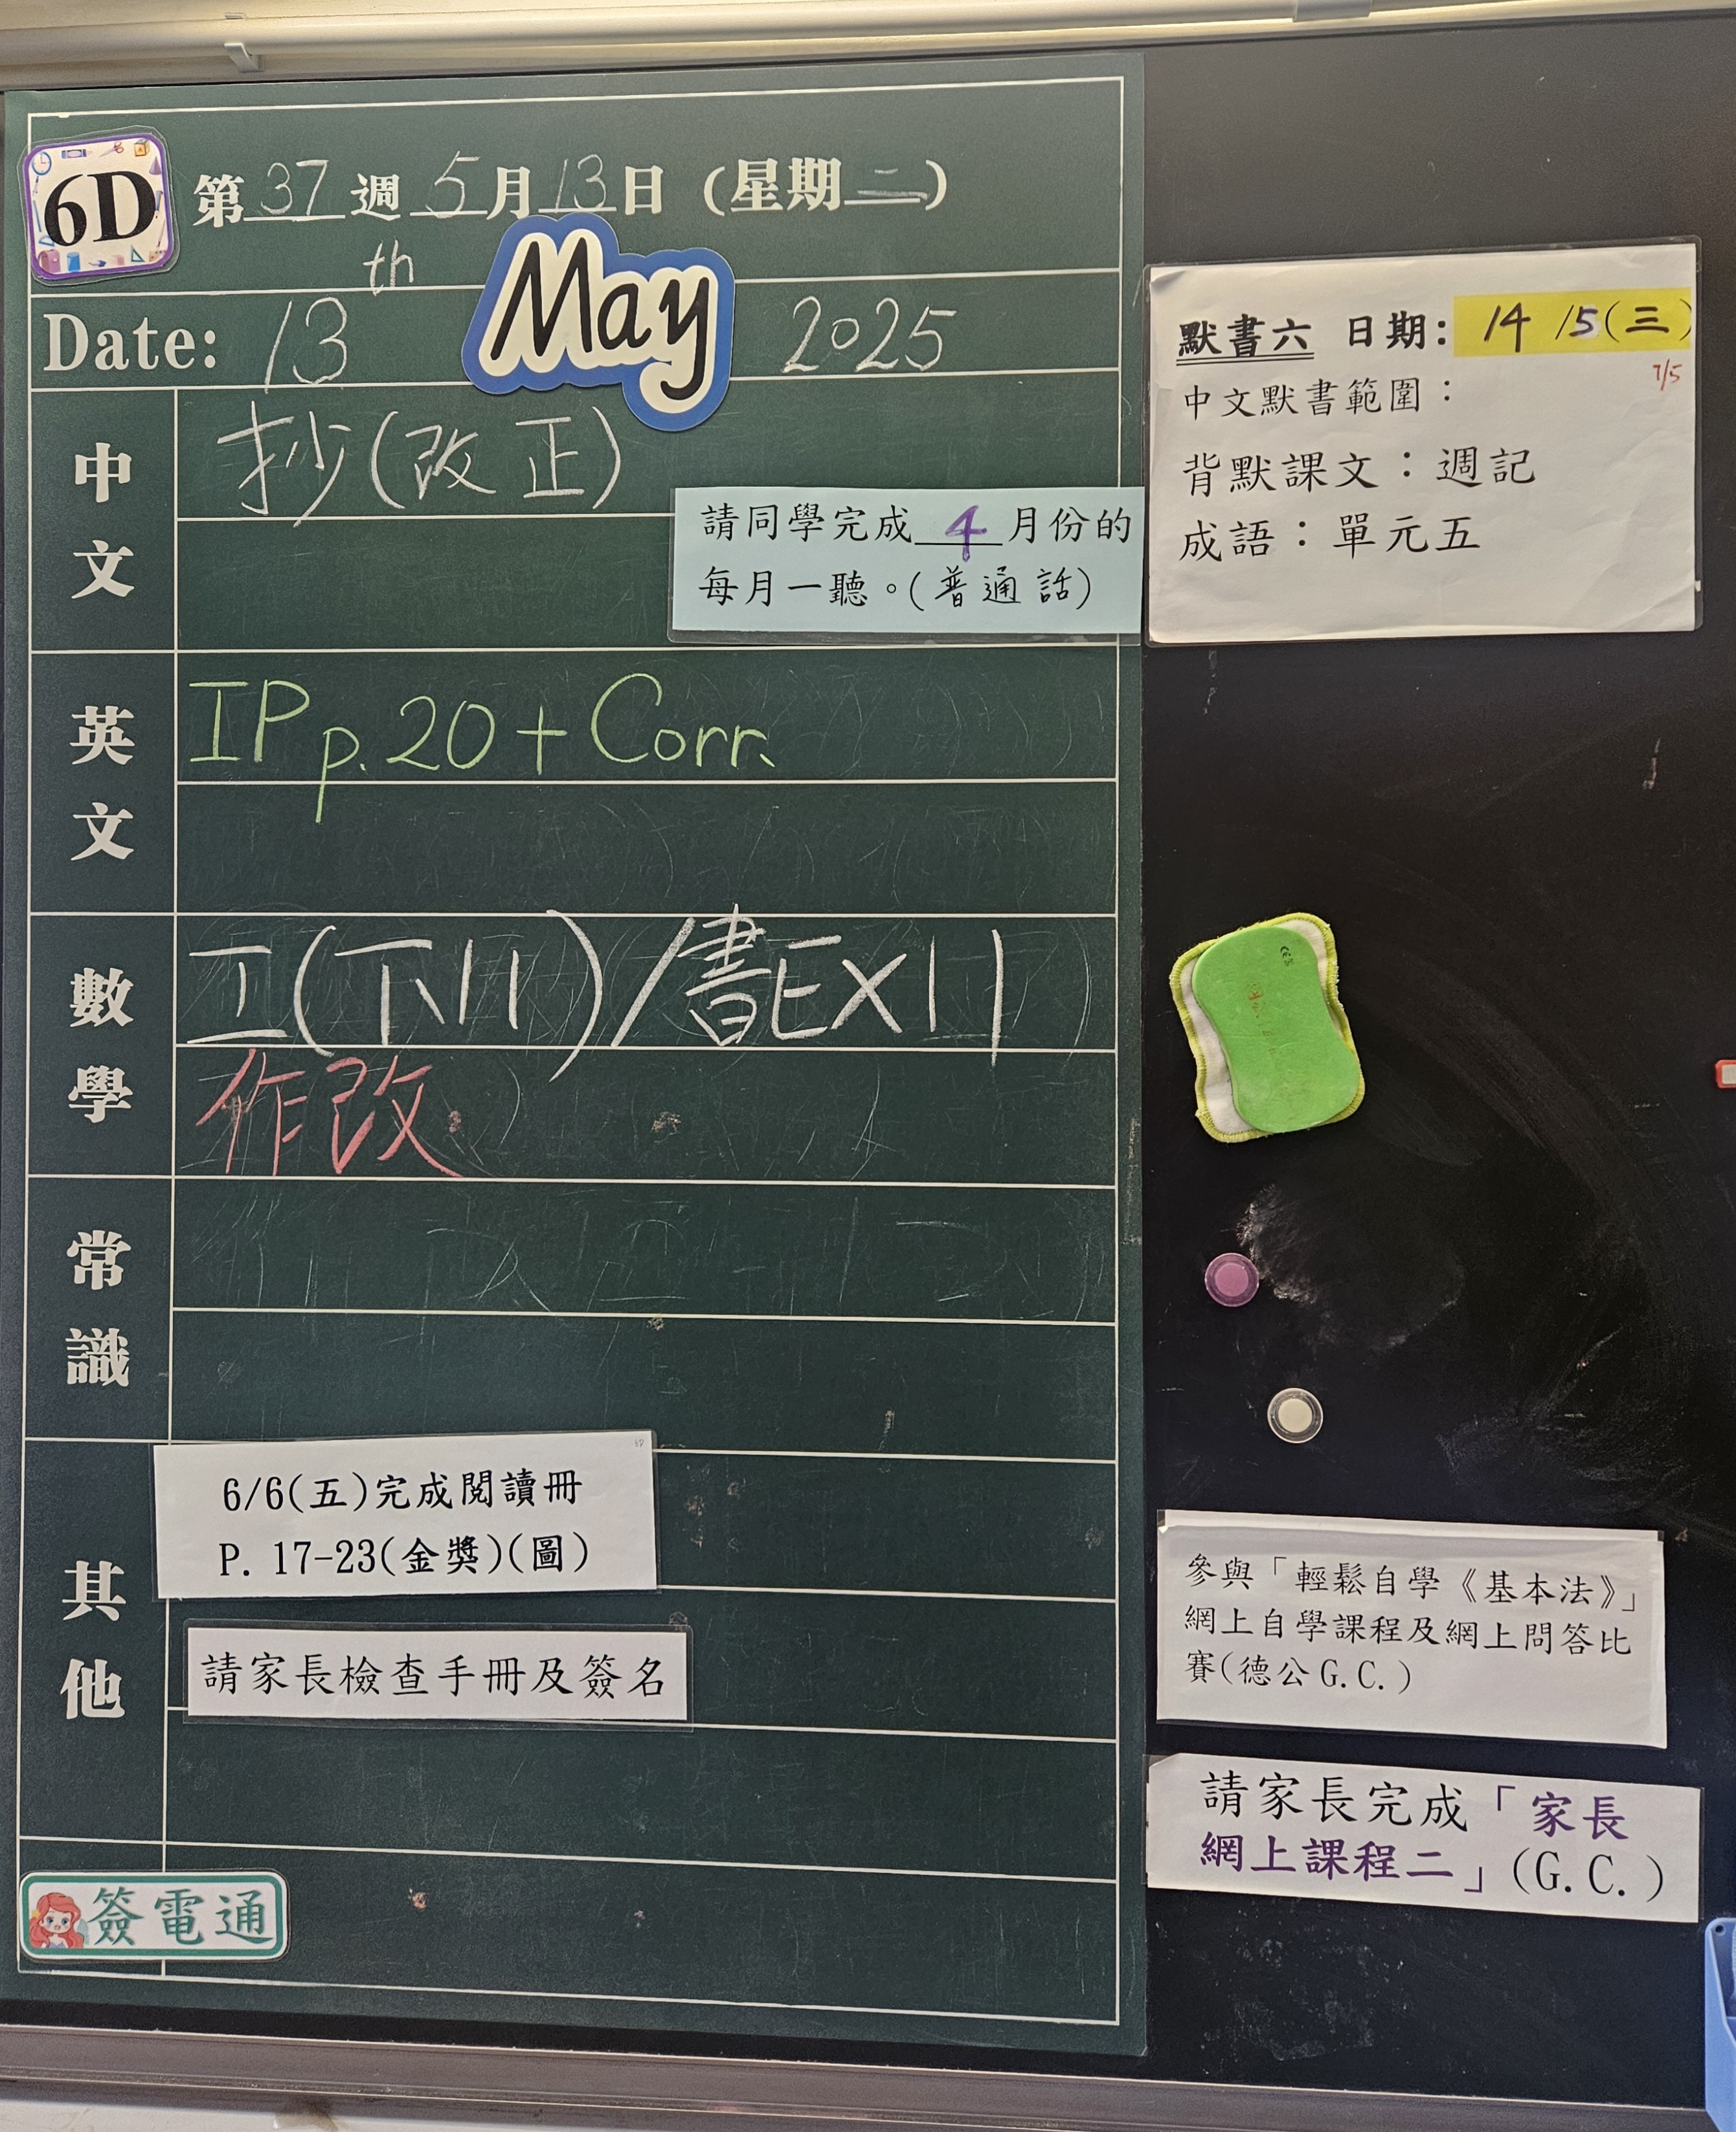 6D
第37週5月13日(星期二)
Date: 13th May 2025
中文
抄(改正)
請同學完成4月份的
每月一聽。(普通話)
英文
IP p.20 + Corr.
數學
工(下11)/書EX11
作改
常識
其他
6/6(五)完成閱讀冊
P. 17-23(金獎)(圖)
請家長檢查手冊及簽名
簽電通
默書六 日期: 14/5(三)
7/5
中文默書範圍：
背默課文：週記
成語：單元五
參與「輕鬆自學《基本法》」
網上自學課程及網上問答比
賽(德公G.C.)
請家長完成「家長
網上課程二」(G.C.)